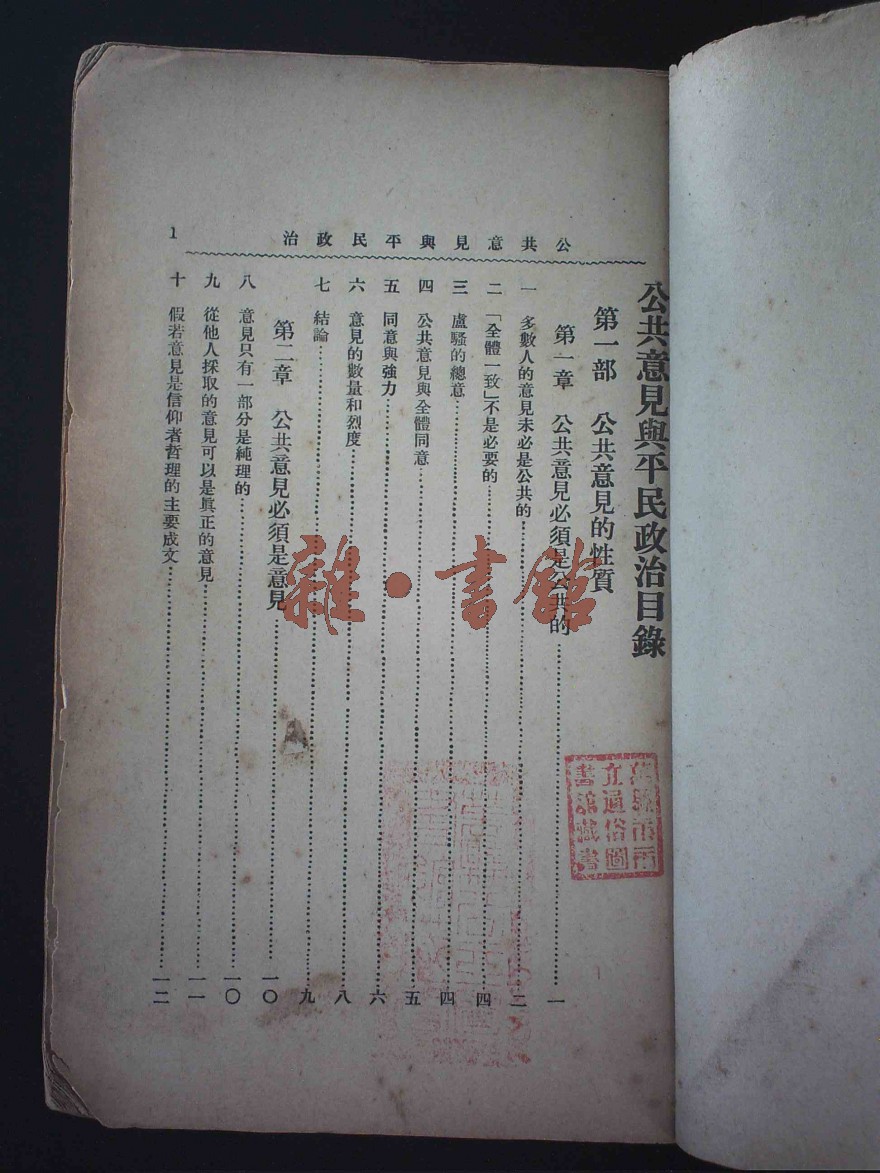 公共意見與平民政治
1
公共意見與平民政治目錄
第一部 公共意見的性質
第一章 公共意見必須是公共的……一
一 多數人的意見未必是公共的……二
二 「全體一致」不是必要的……四
三 盧騷的總意……四
四 公共意見與全體同意……五
五 同意與強力……六
六 意見的數量和烈度……八
七 結論……九
第二章 公共意見必須是意見……一〇
八 意見只有一部分是純理的……一〇
九 從他人採取的意見可以是眞正的意見……一一
十 假若意見是信仰者哲理的主要成文……一二
雜·書館
立通俗圖
書館藏書